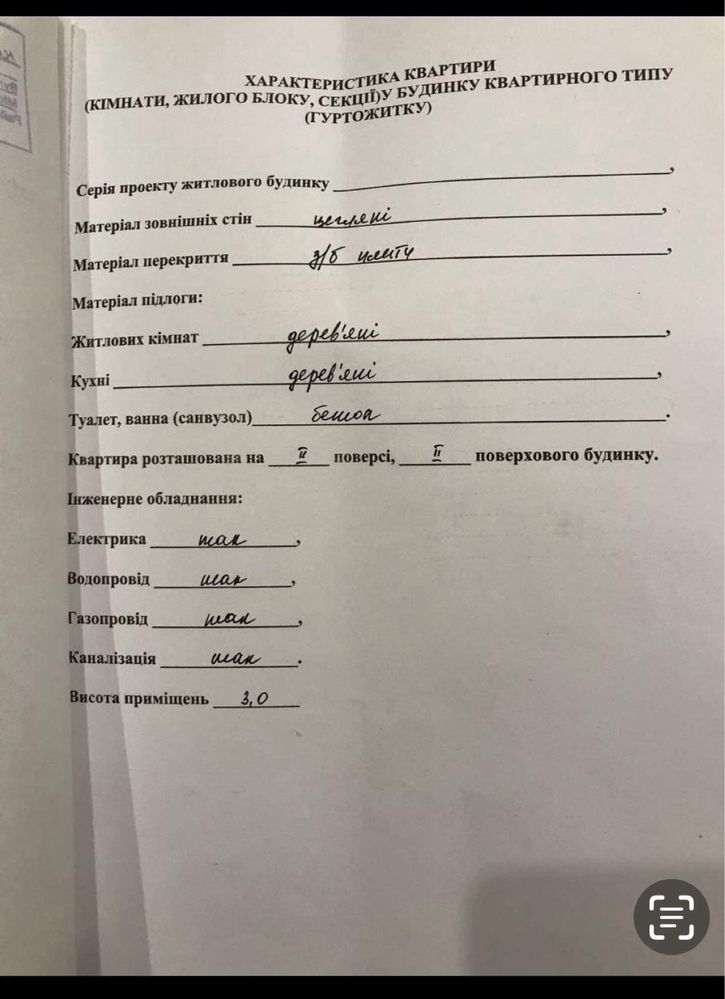 ХАРАКТЕРИСТИКА КВАРТИРИ
(КІМНАТИ, ЖИЛОГО БЛОКУ, СЕКЦІЇ)У БУДИНКУ КВАРТИРНОГО ТИПУ
(ГУРТОЖИТКУ)
Серія проекту житлового будинку ,
Матеріал зовнішніх стін цегляні ,
Матеріал перекриття з/б плити ,
Матеріал підлоги:
Житлових кімнат дерев'яні ,
Кухні дерев'яні ,
Туалет, ванна (санвузол) бетон .
Квартира розташована на II поверсі, II поверхового будинку.
Інженерне обладнання:
Електрика так ,
Водопровід так ,
Газопровід так ,
Каналізація так .
Висота приміщень 3,0